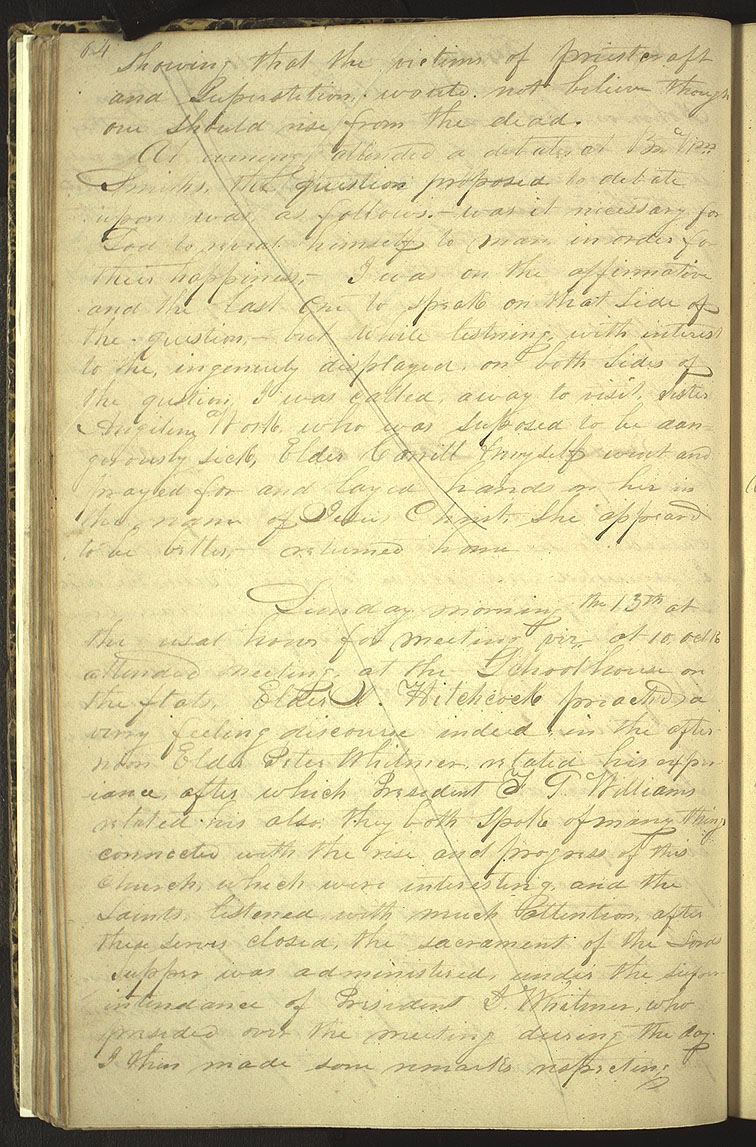 64
Showing that the victims of priestcraft
and Superstition, would not believe though
one should rise from the dead.
At evening attended a debate, at Br. Wm
Smiths, the question proposed to debate
upon was, as follows.— was it necessary for
God to reveal himself to man, in order for
their happiness,— I was on the affirmative
and the last one to speak on that Side of
the question,— but while listning, with interest
to the, ingenuity displayed, on both Sides of
the qustion, I was called, away to visit, Sister
Angeline Work, who was suposed to be dan-
gerously sick, Elder Corrill & myself went and
prayed for and layed hands on her in
the name of Jesus Christ, She appeard
to be better,— returned home
Sunday morning the 13th at
the usal hour for meeting viz. at 10, ock
attended meeting, at the School house on
the flats, Elder J. Hitchcock preachd, a
very feeling discourse indeed, in the after-
noon Elder Peter Whitmer, related his exper-
iance, after which President F G. Williams
related his also, they both spoke of many things
connected with the rise and progress of this
church, which were interesting, and the
Saints, listened with much attention, after
these serves closed, the sacrament of the Lords
Supper was administered, under the super-
intendance of President D. Whitmer, who
presided over the meeting during the day.
I then made some remarks respecting